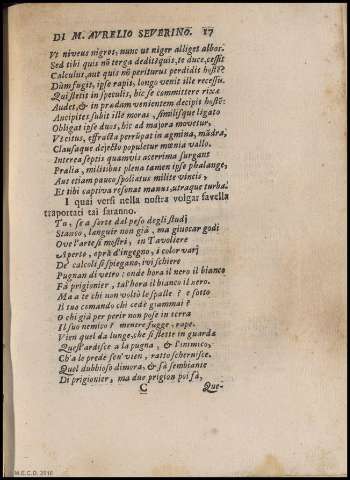 DI M. AVRELIO SEVERINO. 17
Vt niveus nigros, nunc ut niger alliget albos.
Sed tibi quis nõ terga dedit? quis, te duce, cessit
Calculus, aut quis nõ periturus perdidit hostẽ?
Dum fugit, ipse rapit, longo venit ille recessu.
Qui stetit in speculis, hic se committere rixæ
Audet, & in prædam venientem decipit hostẽ:
Ancipites subit ille moras, similisque ligato
Obligat ipse duos, hic ad majora movetur,
Vt citus, effracta perrũpat in agmina, mãdra,
Clausaque dejecto populetur mœnia vallo.
Interea septis quamvis acerrima surgant
Prælia, militibus plena tamen ipse phalange,
Aut etiam pauco spoliatus milite vincis,
Et tibi captiva resonat manus, utraque turba.
I quai versi nella nostra volgar favella
traportati tai faranno.
Tu, se a sorte dal peso degli studj
Stanco, languir non già, ma giuocar godi
Ove l'arte si mostri, in Tavoliere
Aperto, oprà d'ingegno, i color varj
De' calcoli si spiegano, ivi schiere
Pugnan di vetro: onde hora il nero il bianco
Fà prigionier, tal'hora il bianco il nero.
Ma a te chi non voltò le spalle? e sotto
Il tuo comando chi cedè giammai?
O chi già per perir non pose in terra
Il suo nemico? mentre fugge, rape.
Vien quel da lunge, che si stette in guarda
Quest'ardisce a la pugna, & l'inimico,
Ch'a le prede sen' vien, ratto schernisce.
Quel dubbioso dimora, & fà sembiante
Di prigionier, ma due prigion poi fà,
C Que-
M.E.C.D. 2016